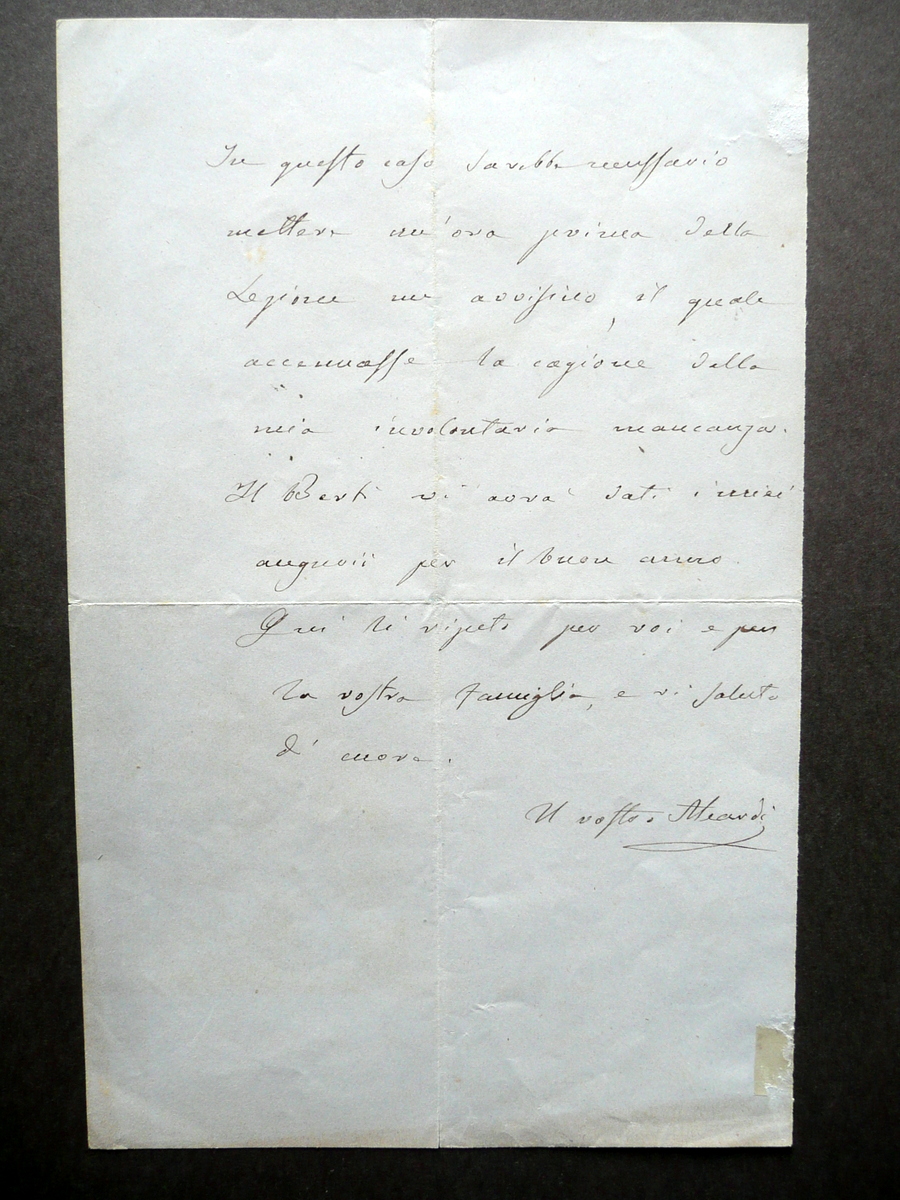 In questo caso sarebbe necessario
mettere un'ora prima della
Lezione un avvisino, il quale
accennasse la cagione della
mia involontaria mancanza.
Il Berti vi avrà dati i miei
augurii per il buon anno.
Qui li ripeto per voi e per
la vostra famiglia, e vi saluto
di cuore.
Il vostro Aleardi